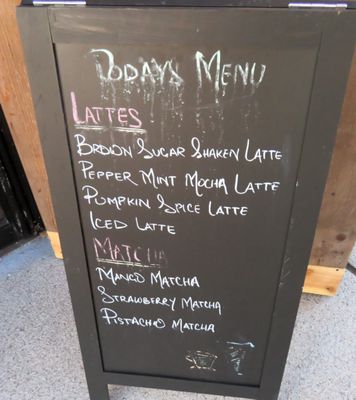 TODAYS MENU
LATTES
BROION SUGAR SHAKEN LATTE
PEPPER MINT MOCHA LATTE
PUMPKIN SPICE LATTE
ICED LATTE
MATCHA
MANGO MATCHA
STRAWBERRY MATCHA
PISTACHIO MATCHA